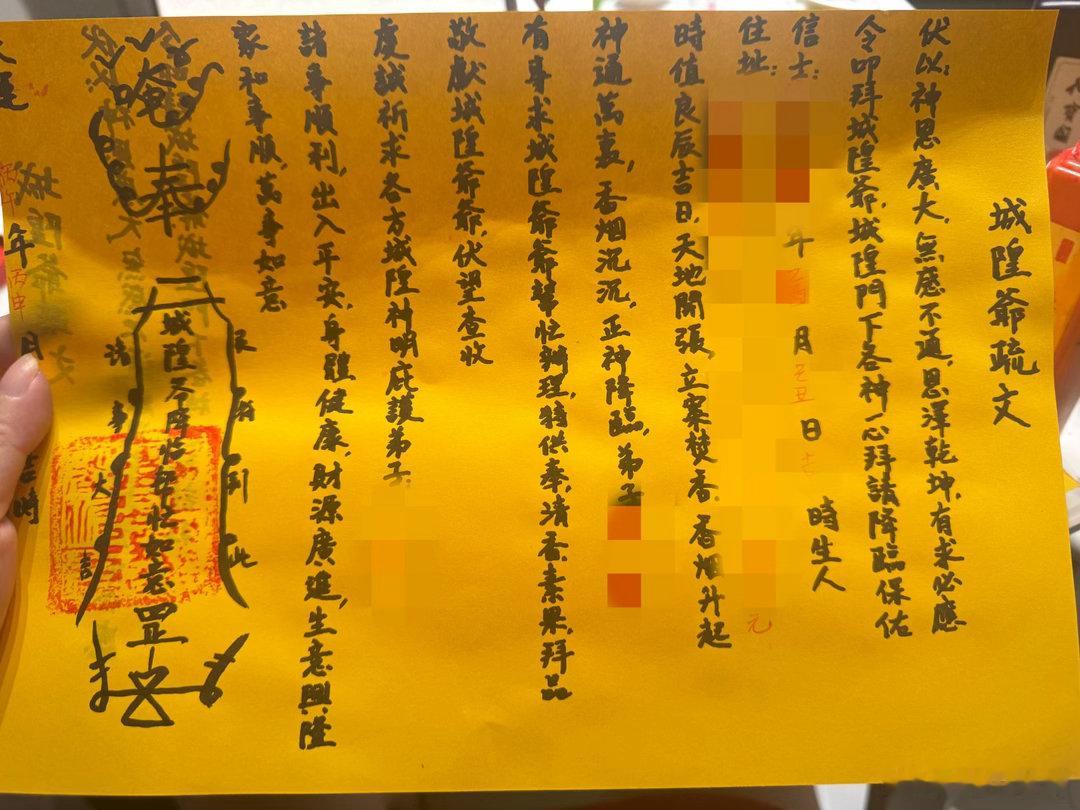 城隍爺疏文
伏以：神恩廣大，無應不通，恩澤乾坤，有求必應
令叩拜城隍爺，城隍門下各神一心拜請降臨保佑
信士： 年 月 日 時生人
住址： 元
時值良辰吉日，天地開張，立案焚香，香烟升起
神通萬裏，香烟沉沉，正神降臨，弟子
有事求城隍爺爺幫忙辦理，特供奉，清香素果，拜品
敬獻城隍爺爺，伏望查收
虔誠祈求各方城隍神明庇護弟子：
諸事順利，出入平安，身體健康，財源廣進，生意興隆
家和事順，萬事如意
奉
城隍爺 如意罡
諸事大吉
天運
年丙申月
時